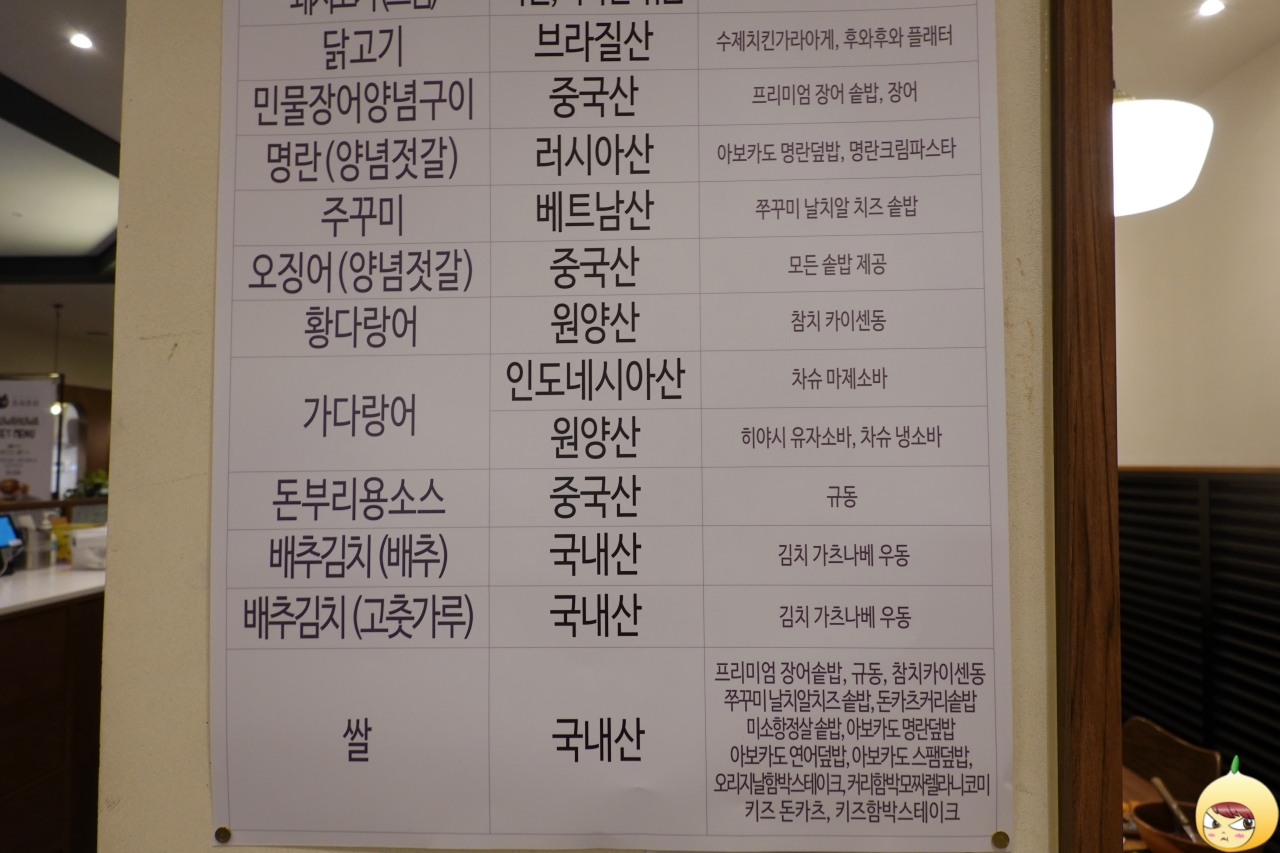 닭고기 브라질산 수제치킨가라아게, 후와후와 플래터
민물장어양념구이 중국산 프리미엄 장어 솥밥, 장어
명란(양념젓갈) 러시아산 아보카도 명란덮밥, 명란크림파스타
주꾸미 베트남산 쭈꾸미 날치알 치즈 솥밥
오징어(양념젓갈) 중국산 모든 솥밥 제공
황다랑어 원양산 참치 카이센동
가다랑어
인도네시아산 차슈 마제소바
원양산 히야시 유자소바, 차슈 냉소바
돈부리용소스 중국산 규동
배추김치(배추) 국내산 김치 가츠나베 우동
배추김치(고춧가루) 국내산 김치 가츠나베 우동
쌀 국내산
프리미엄 장어솥밥, 규동, 참치카이센동
쭈꾸미 날치알치즈 솥밥, 돈카츠커리솥밥
미소항정살 솥밥, 아보카도 명란덮밥
아보카도 연어덮밥, 아보카도 스팸덮밥,
오리지날함박스테이크, 커리함박모짜렐라니코미
키즈 돈카츠, 키즈함박스테이크